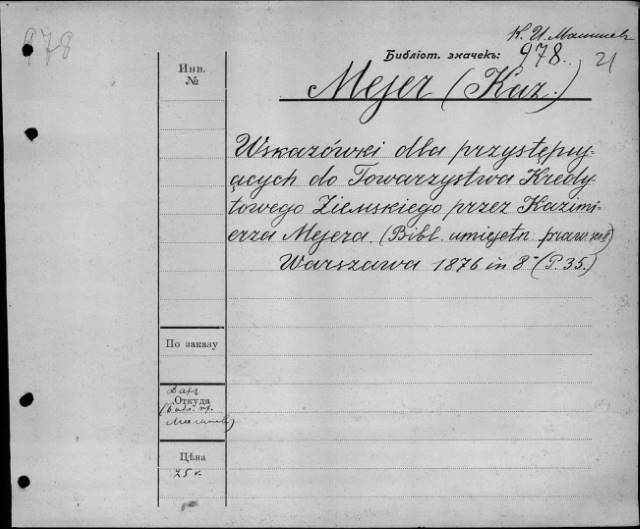 978
К. И. Малышев
Библіот. значекъ: 978. 21
Инв.
№
Mejer (Kaz.)
Wskazówki dla przystępuj-
ących do Towarzystwa Kredy-
towego Ziemskiego przez Kazimi-
erza Mejera. (Bibl. umiejętn. praw.
Warszawa 1876 in 8° (P. 35.)
По заказу
Даръ
Откуда
Малышев)
Цѣна
25 к.